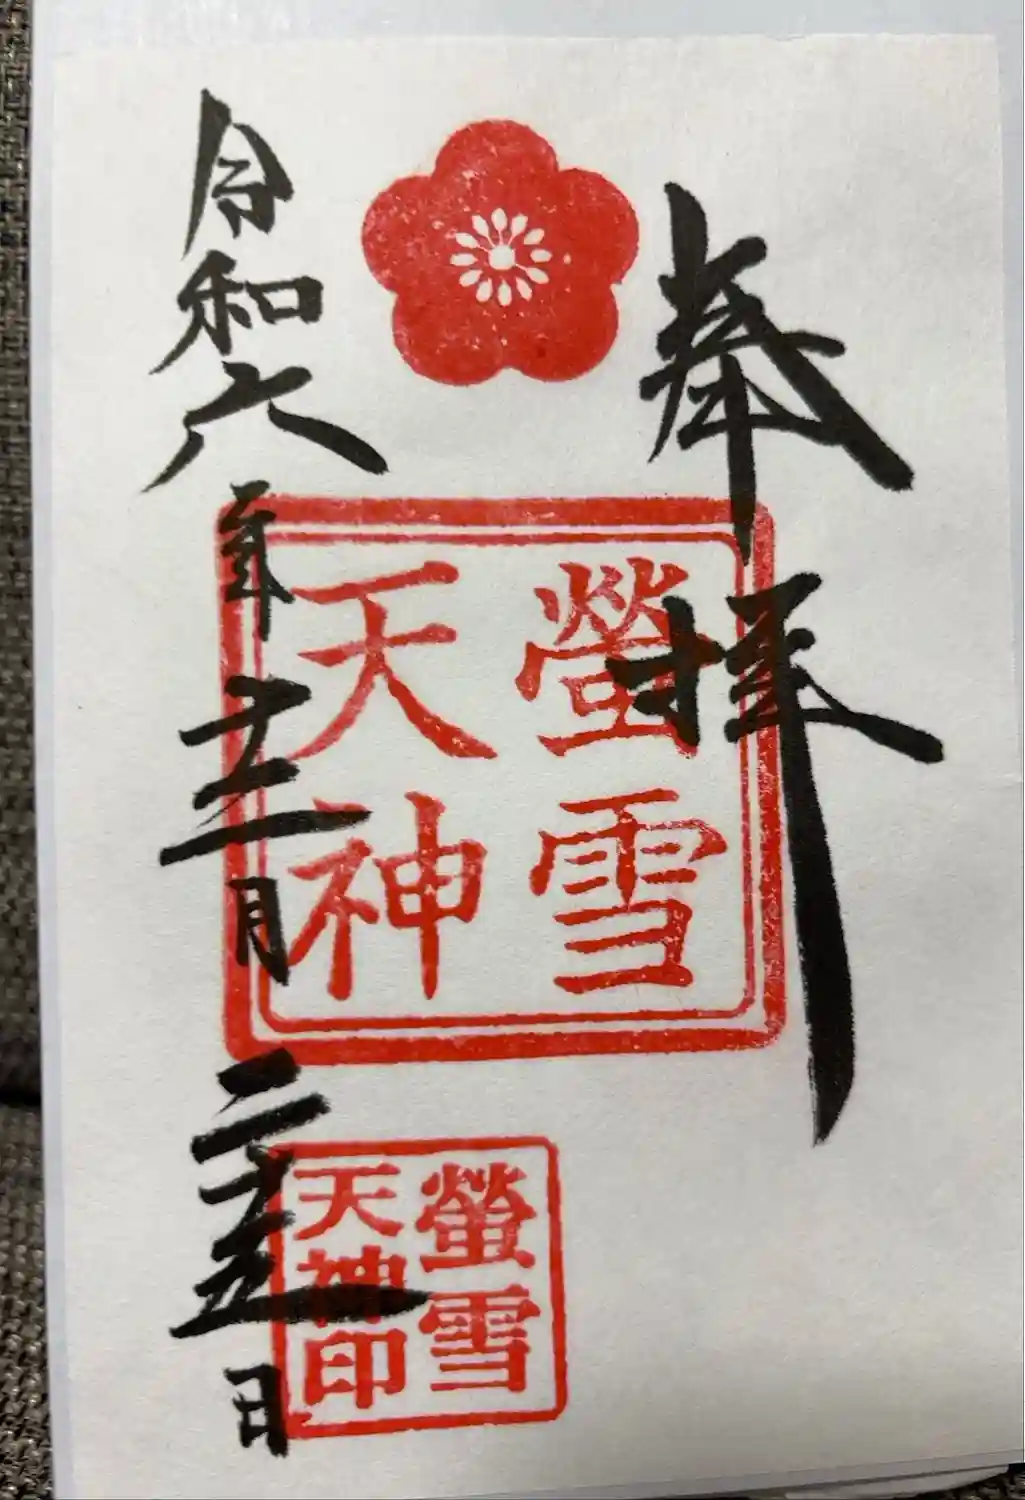 奉拝
螢雪
天神
螢雪
天神印
令和六年十二月二十五日